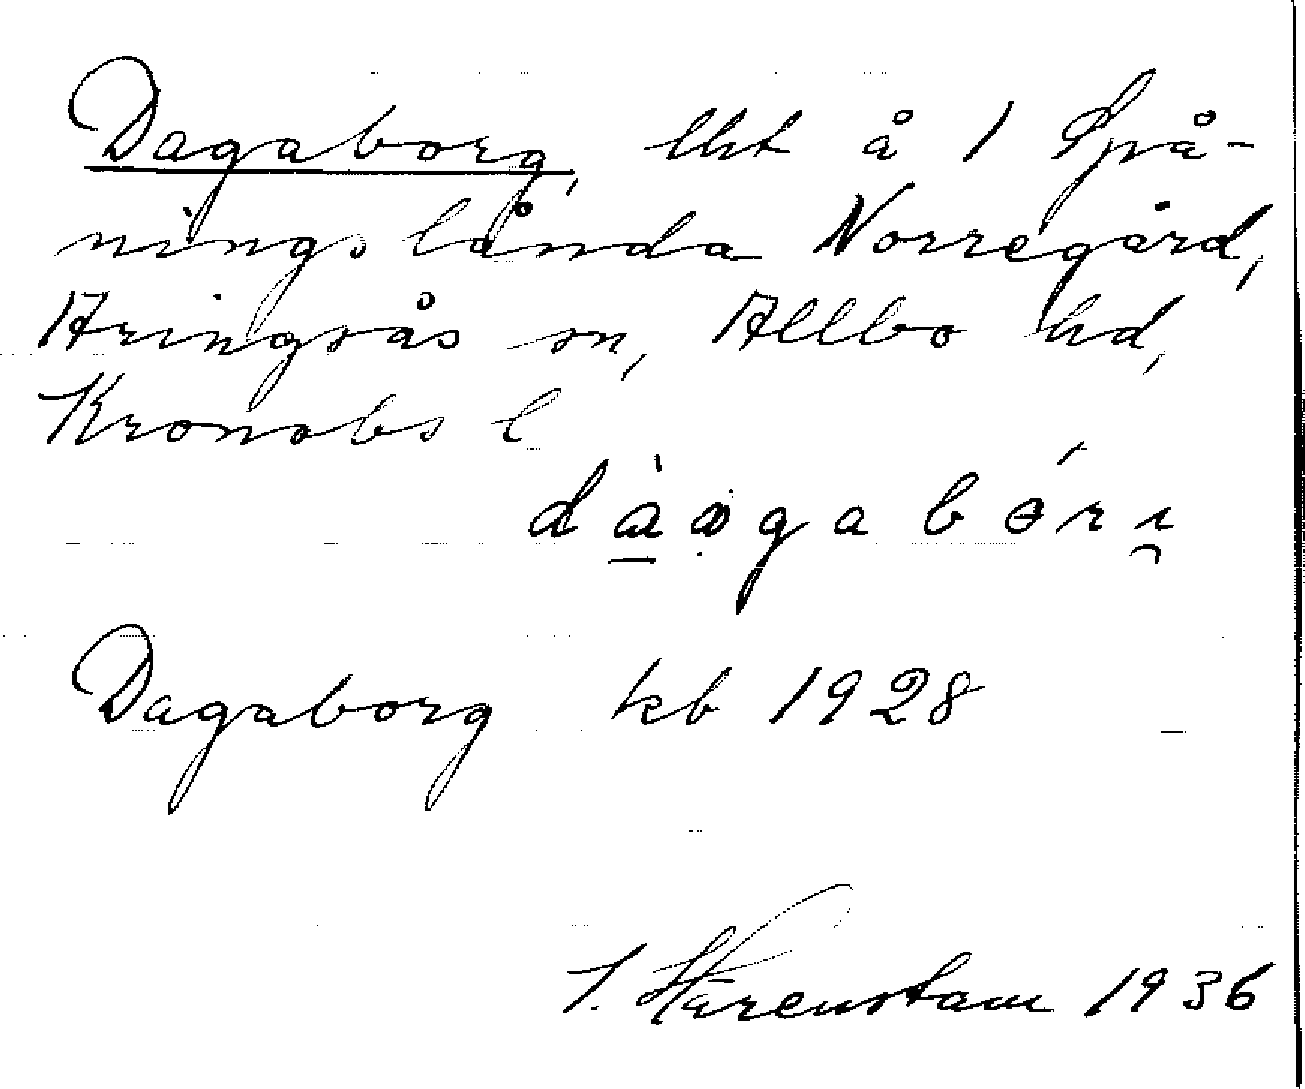 Dagaborg, lht å 1 Spå-
ningslånda Norregård,
Aringsås sn, Allbo hd,
Kronobs l
Dagaborg kb 1928
Härenstam 1936